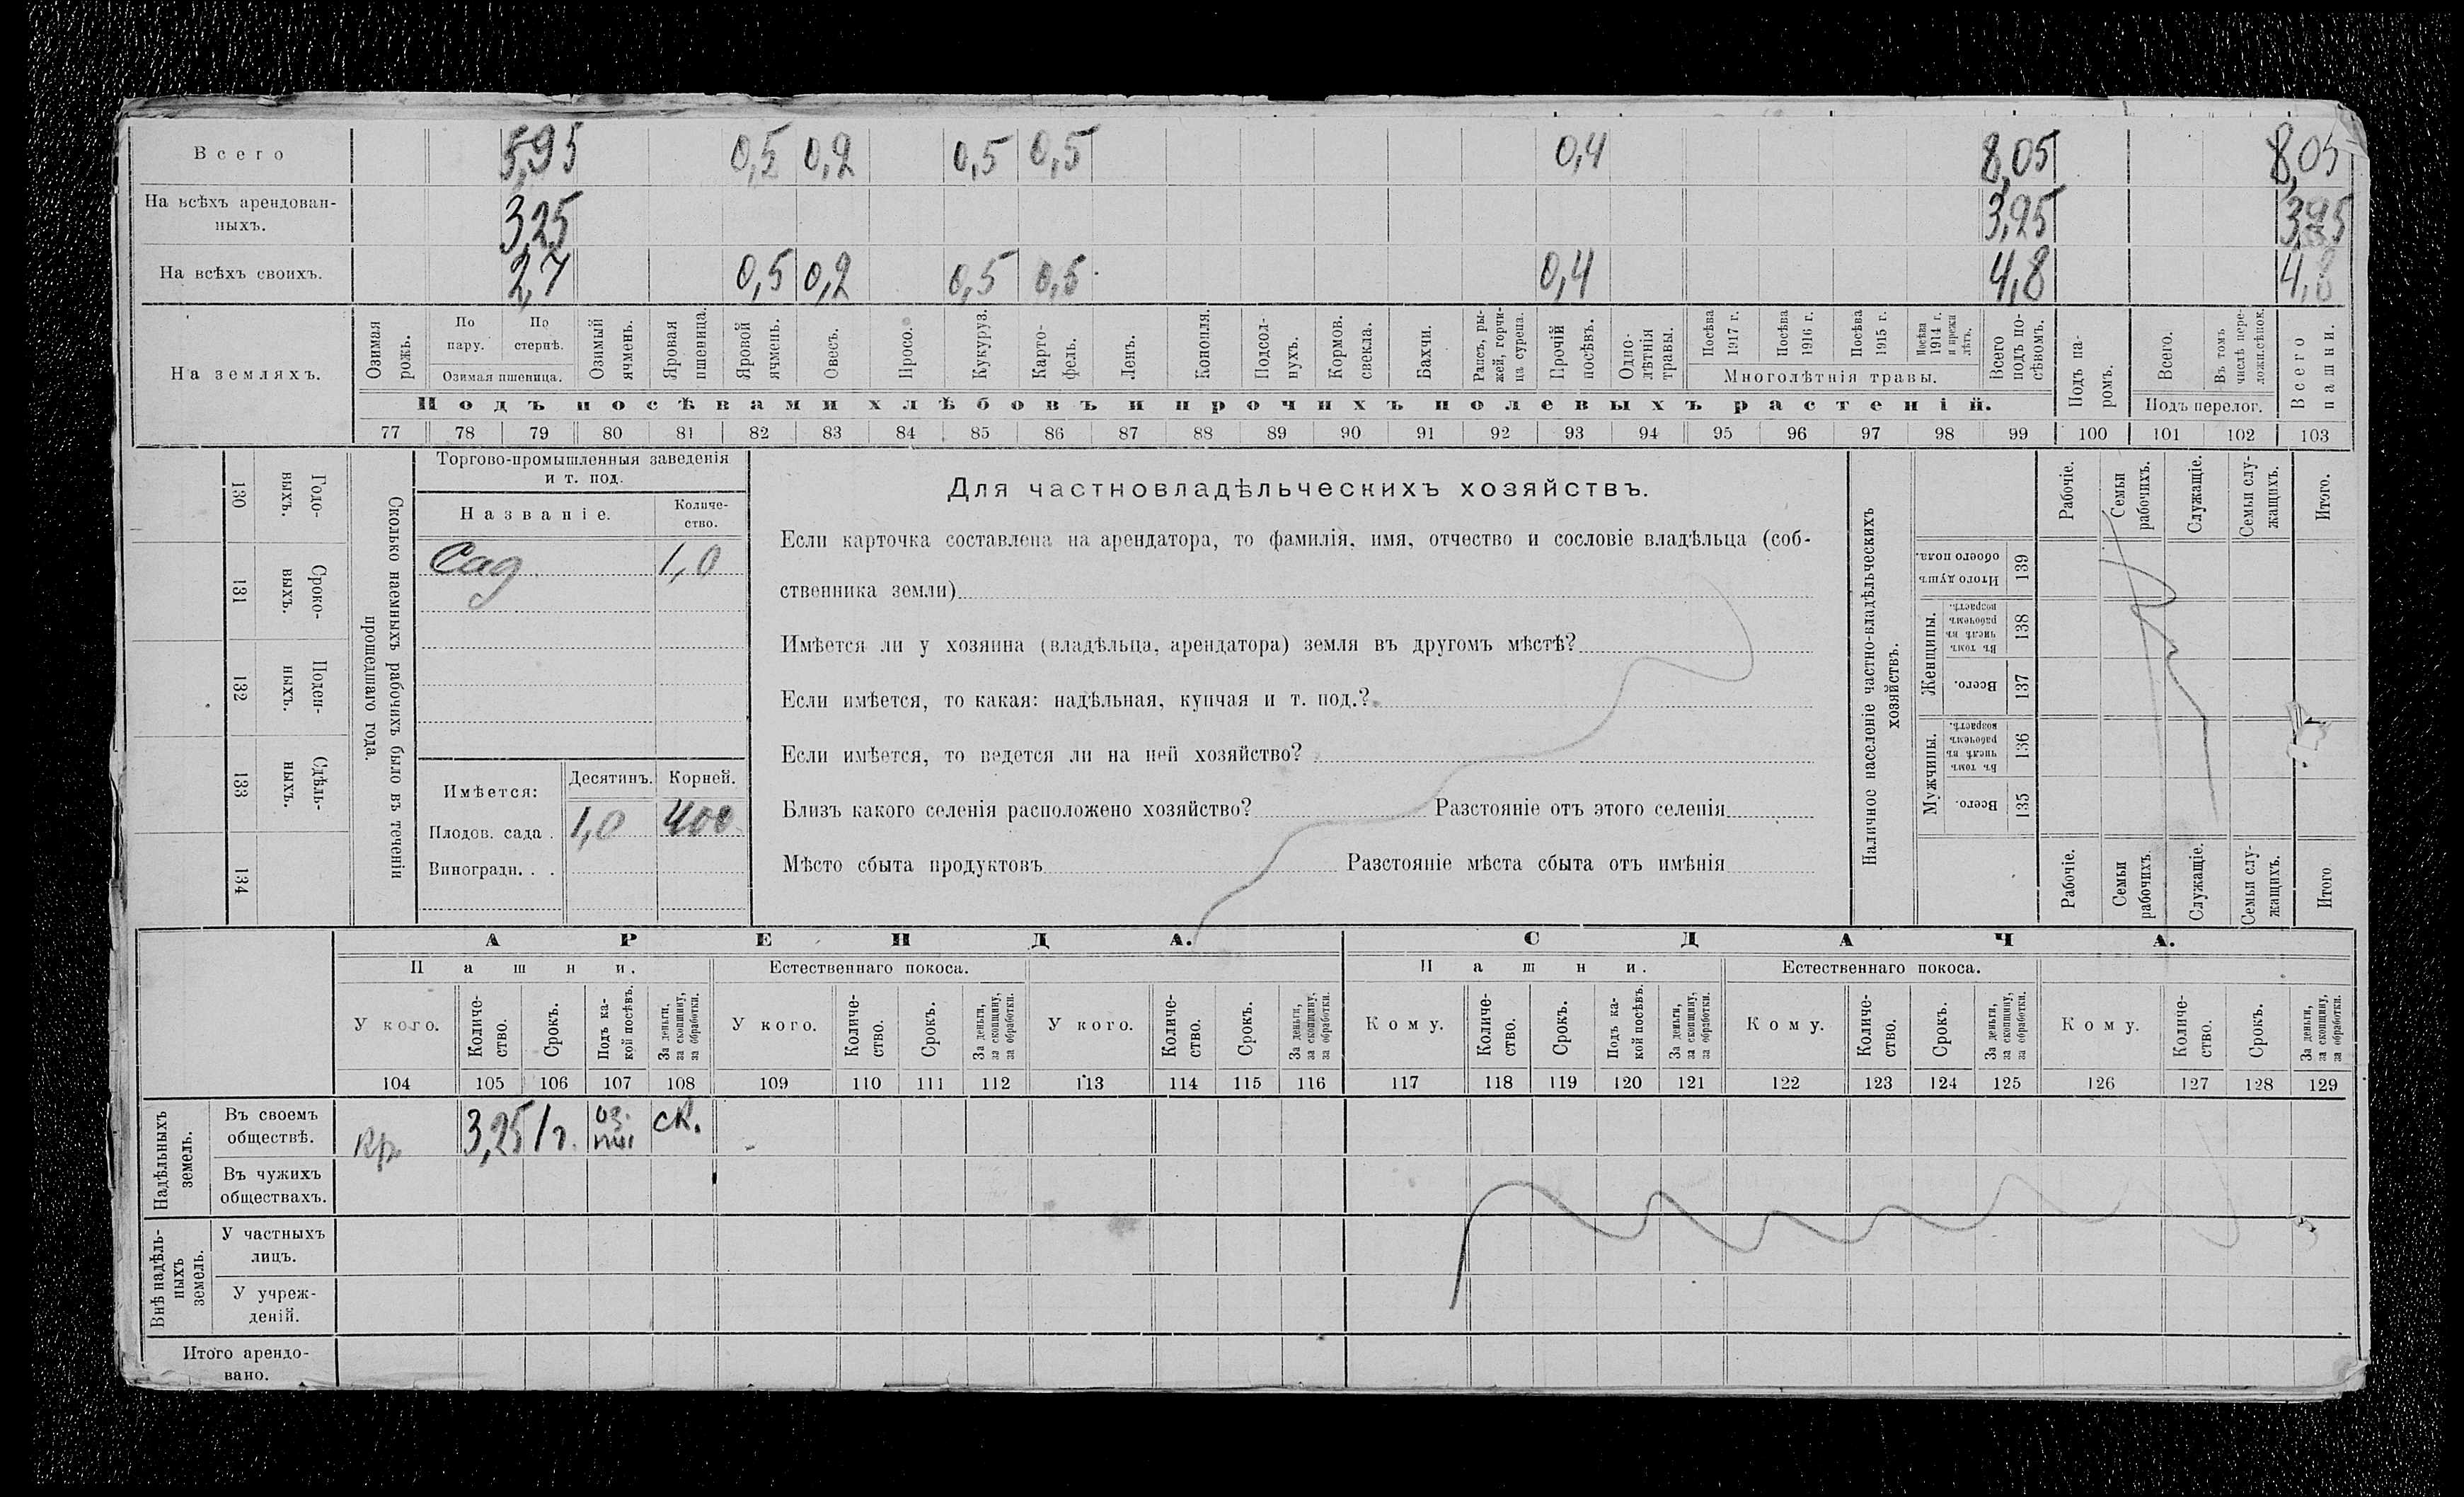 Всего 5,95 0,5 0,2 0,5 0,5 0,4 8,05 8,05
На всѣхъ арендован-
ныхъ. 3,25 3,25 3,25
На всѣхъ своихъ. 2,7 0,5 0,2 0,5 0,5 0,4 4,8 4,8
На земляхъ.
Озимая рожь.
По пару.
По стернѣ.
Озимая пшеница.
Озимый ячмень.
Яровая пшеница.
Яровой ячмень.
Овесъ.
Просо.
Кукуруз.
Карто-
фель.
Ленъ.
Конопля.
Подсол-
нухъ.
Кормов.
свекла.
Бахчи.
Рапсъ, ры-
жей, горчи-
ца сурепа.
Прочій посѣвъ.
Одно-
лѣтнія травы.
Посѣва 1917 г.
Посѣва 1916 г.
Посѣва 1915 г.
Посѣва 1914 г. и прежн лѣтъ.
Многолѣтнія травы.
Всего подъ по-
сѣвомъ.
Подъ посѣвами хлѣбовъ и прочихъ полевыхъ растеній.
Подъ па-
ромъ.
Всего.
Въ томъ числѣ пере-
ложн.сѣнок.
Подъ перелог.
Всего пашни.
77 78 79 80 81 82 83 84 85 86 87 88 89 90 91 92 93 94 95 96 97 98 99 100 101 102 103
Годо-
выхъ.
130
Сроко-
выхъ.
131
Поден-
ныхъ.
132
Сдѣль-
ныхъ.
133
134
Сколько наемныхъ рабочихъ было въ теченіи
прошедшаго года.
Торгово-промышленныя заведенія
и т. под.
Названіе. Количе-
ство.
Сад 1,0
Имѣется: Десятинъ. Корней.
Плодов. сада . 1,0 400
Виноградн. . .
Для частновладѣльческихъ хозяйствъ.
Если карточка составлена на арендатора, то фамилія, имя, отчество и сословіе владѣльца (соб-
ственника земли)
Имѣется ли у хозяина (владѣльца, арендатора) земля въ другомъ мѣстѣ?
Если имѣется, то какая: надѣльная, купчая и т. под.?
Если имѣется, то ведется ли на ней хозяйство?
Близъ какого селенія расположено хозяйство? Разстояніе отъ этого селенія
Мѣсто сбыта продуктовъ Разстояніе мѣста сбыта отъ имѣнія
Наличное населеніе частно-владѣльческихъ
хозяйствъ.
Рабочіе.
Семьи рабочихъ.
Служащіе.
Семьи слу-
жащихъ.
Итого.
Итого душъ обоего пола.
139
Женщины.
Въ томъ числѣ въ рабочемъ возрастѣ.
138
Всего.
137
Мужчины.
Въ томъ числѣ въ рабочемъ возрастѣ.
136
Всего.
135
Рабочіе.
Семьи рабочихъ.
Служащіе.
Семьи слу-
жащихъ.
Итого
АРЕНДА. СДАЧА.
Пашни. Естественнаго покоса. Пашни. Естественнаго покоса.
У кого.
Количе-
ство.
Срокъ.
Подъ ка-
кой посѣвъ.
За деньги, за скопщину, за обработки.
У кого.
Количе-
ство.
Срокъ.
За деньги, за скопщину, за обработки.
У кого.
Количе-
ство.
Срокъ.
За деньги, за скопщину, за обработки.
Кому.
Количе-
ство.
Срокъ.
Подъ ка-
кой посѣвъ.
За деньги, за скопщину, за обработки.
Кому.
Количе-
ство.
Срокъ.
За деньги, за скопщину, за обработки.
Кому.
Количе-
ство.
Срокъ.
За деньги, за скопщину, за обработки.
104 105 106 107 108 109 110 111 112 113 114 115 116 117 118 119 120 121 122 123 124 125 126 127 128 129
Надѣльныхъ земель.
Въ своемъ
обществѣ. Кр. 3,25 1 г. оз. пш ск.
Въ чужихъ
обществахъ.
Внѣ надѣль-
ныхъ земель.
У частныхъ
лицъ.
У учреж-
деній.
Итого арендо-
вано.